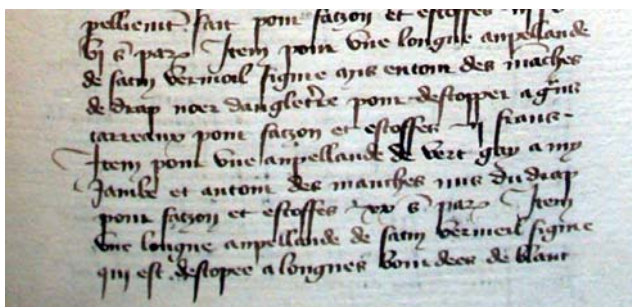 pellienit fait pour faczon et estoffes
vi s par Item pour une longue anpellande
de satin vermoil figuré mis entour des manches
de drap noer dangleterre pour destopper a gms
carreaux pour faczon et estoffes frans
Item pour une anpellande de vert gay a my
Jambe et antour des manches mis du drap
pour faczon et estoffes xx s par Item
une longue anpellande de satin vermeil figuré
qui est destopee a longues bourdees de blanc